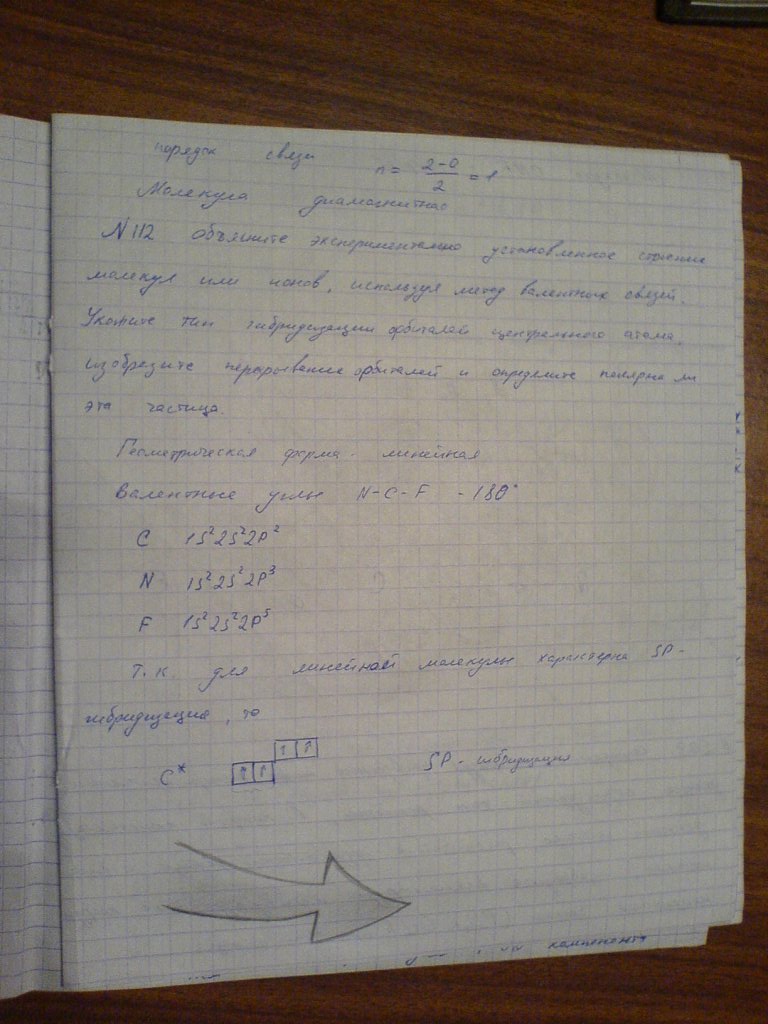 порядок связи n = 2-0/2 = 1
Молекула диамагнитная
N 112 Объясните экспериментально установленное строение
молекул или ионов, используя метод валентных связей.
Укажите тип гибридизации орбиталей центрального атома,
изобразите перекрывание орбиталей и определите полярна ли
эта частица.
Геометрическая форма - линейная
Валентные углы N-C-F - 180°
C 1S²2S²2P²
N 1S²2S²2P³
F 1S²2S²2P⁵
Т.к. для линейной молекулы характерна SP-
гибридизация, то
C* ↑ ↑ ↑ ↑ SP-гибридизация
компонент